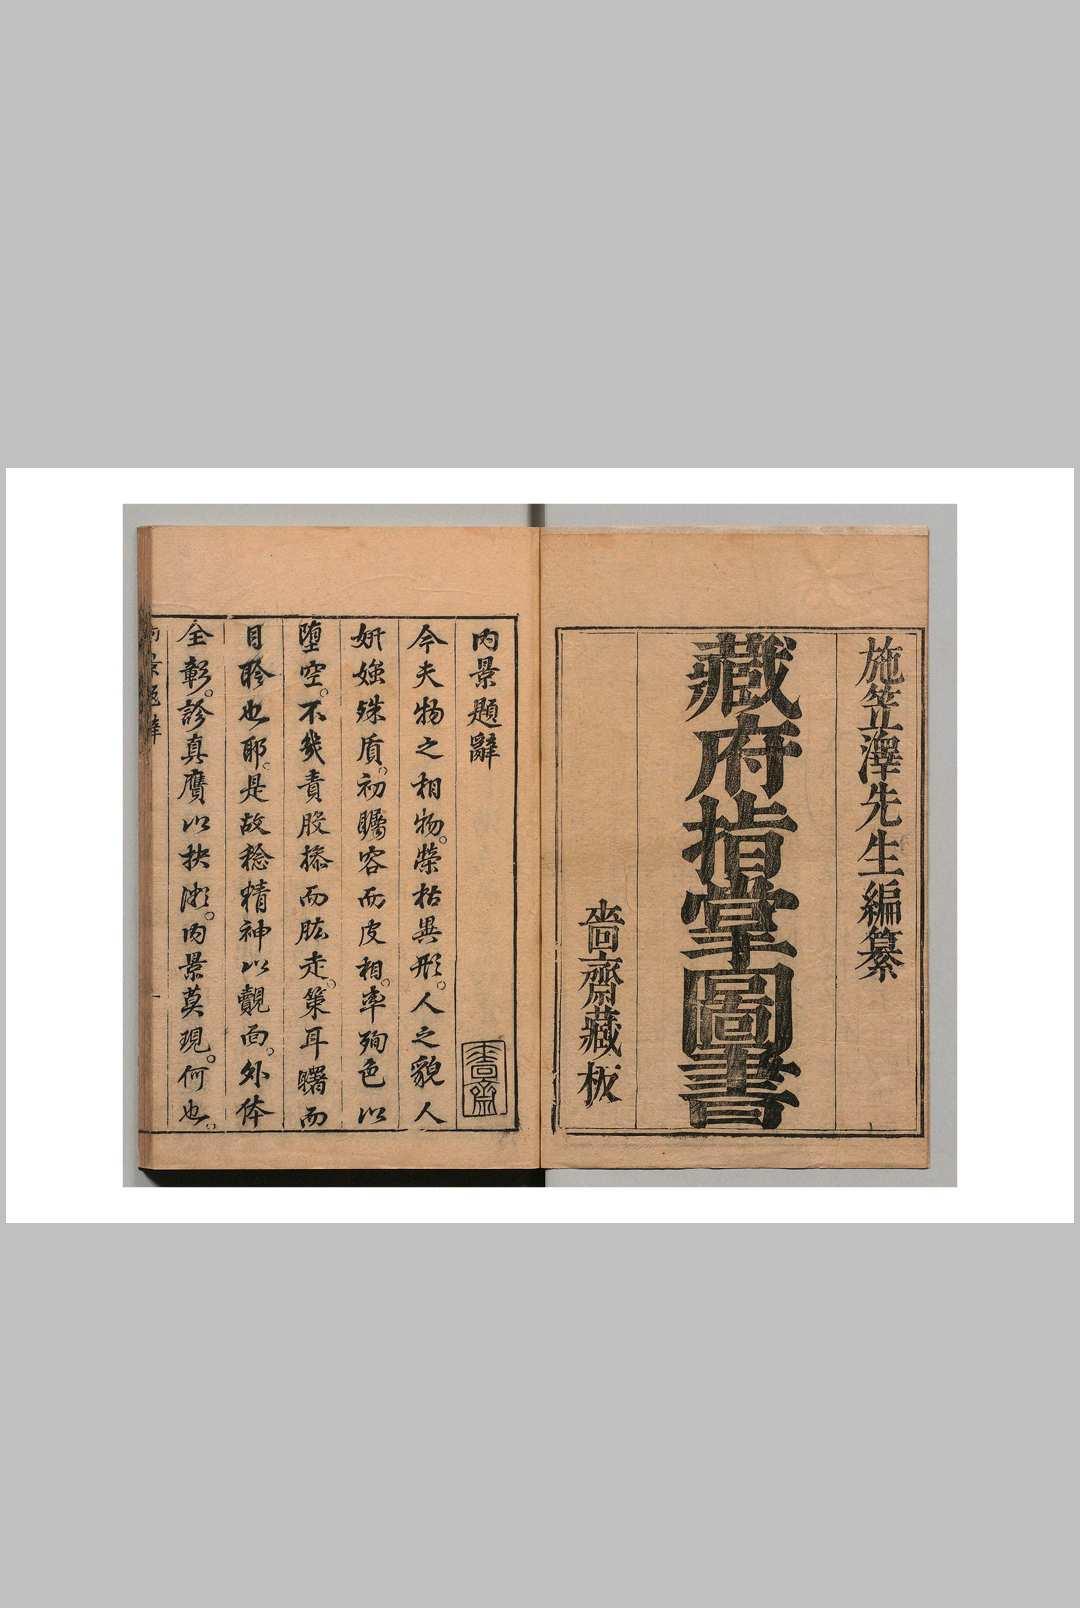 施笠澤先生編纂
藏府指掌圖書
嗇齋藏板
內景題辭
今夫物之相物。榮枯異形。人之貌人
妍媸殊質。初矚容而皮相。率殉色以
墮空。不幾責股搽而肱走。策耳矚而
目聆也耶。是故稔精神以覿面。外体
全彰。診真贋以抉渺。內景莫現。何也。